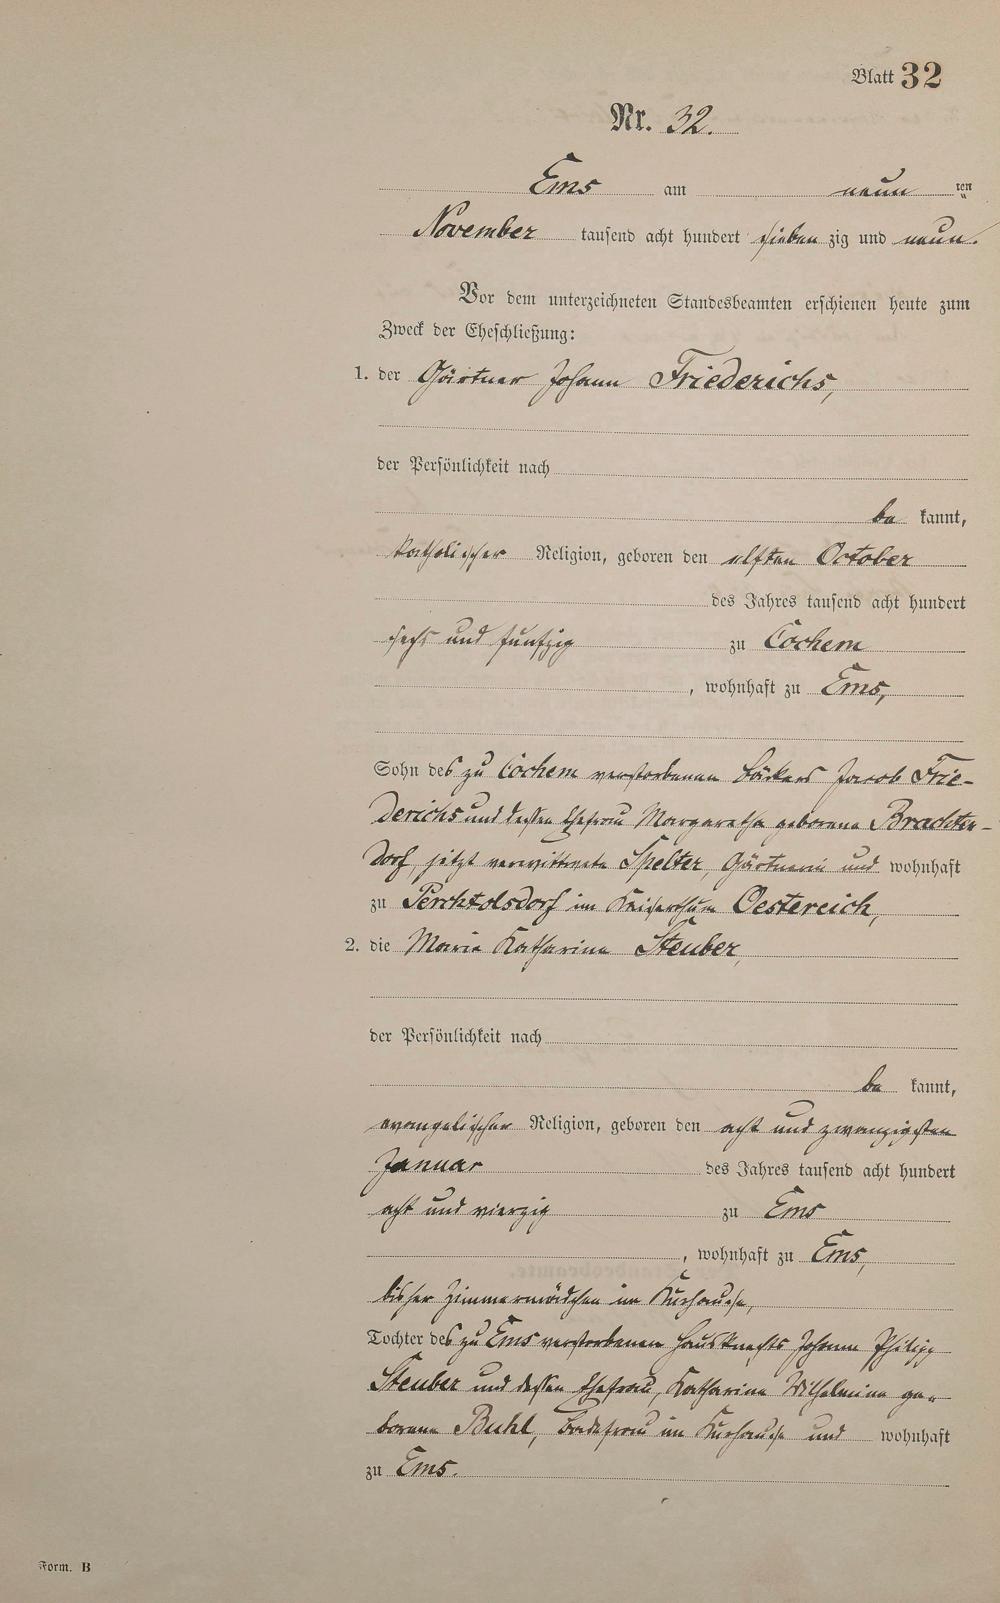 Blatt 32
Nr. 32.
Ems am neun ten
November tausend acht hundert sieben zig und neun.
Vor dem unterzeichneten Standesbeamten erschienen heute zum
Zweck der Eheschließung:
1. der Gärtner Johann Friederichs,
der Persönlichkeit nach
be kannt,
katholischer Religion, geboren den elften October
des Jahres tausend acht hundert
sechs und fünfzig zu Cochem
, wohnhaft zu Ems,
Sohn des zu Cochem verstorbenen Bäckers Jacob Frie-
derichs und dessen Ehefrau Margaretha geborene Brachten-
dorf, jetzt verwittwete Spelter, Gärtnerin und wohnhaft
zu Perchtolsdorf im Kaiserthum Oestereich,
2. die Maria Katharina Steuber,
der Persönlichkeit nach
be kannt,
evangelischer Religion, geboren den acht und zwanzigsten
Januar des Jahres tausend acht hundert
acht und vierzig zu Ems
, wohnhaft zu Ems,
bisher Zimmermädchen im Kurhause,
Tochter des zu Ems verstorbenen Hausknechts Johann Philipp
Steuber und dessen Ehefrau, Katharina Wilhelmina ge-
borene Buhl, Badefrau im Kurhause und wohnhaft
zu Ems.
Form. B